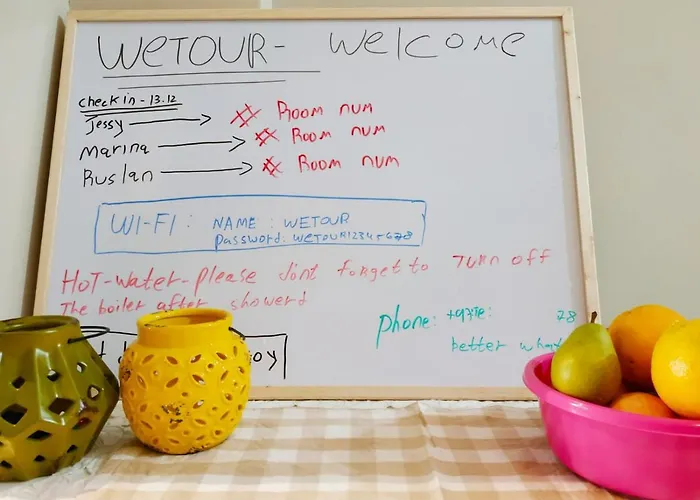 WETOUR- Welcome
Check in - 13.12
Jessy → # Room num
Marina → # Room num
Ruslan → # Room num
WI-FI: NAME: WETOUR
Password: WETOUR12345678
HoT-water-please dont forget to Turn off
The boiler after showerd
phone:
better